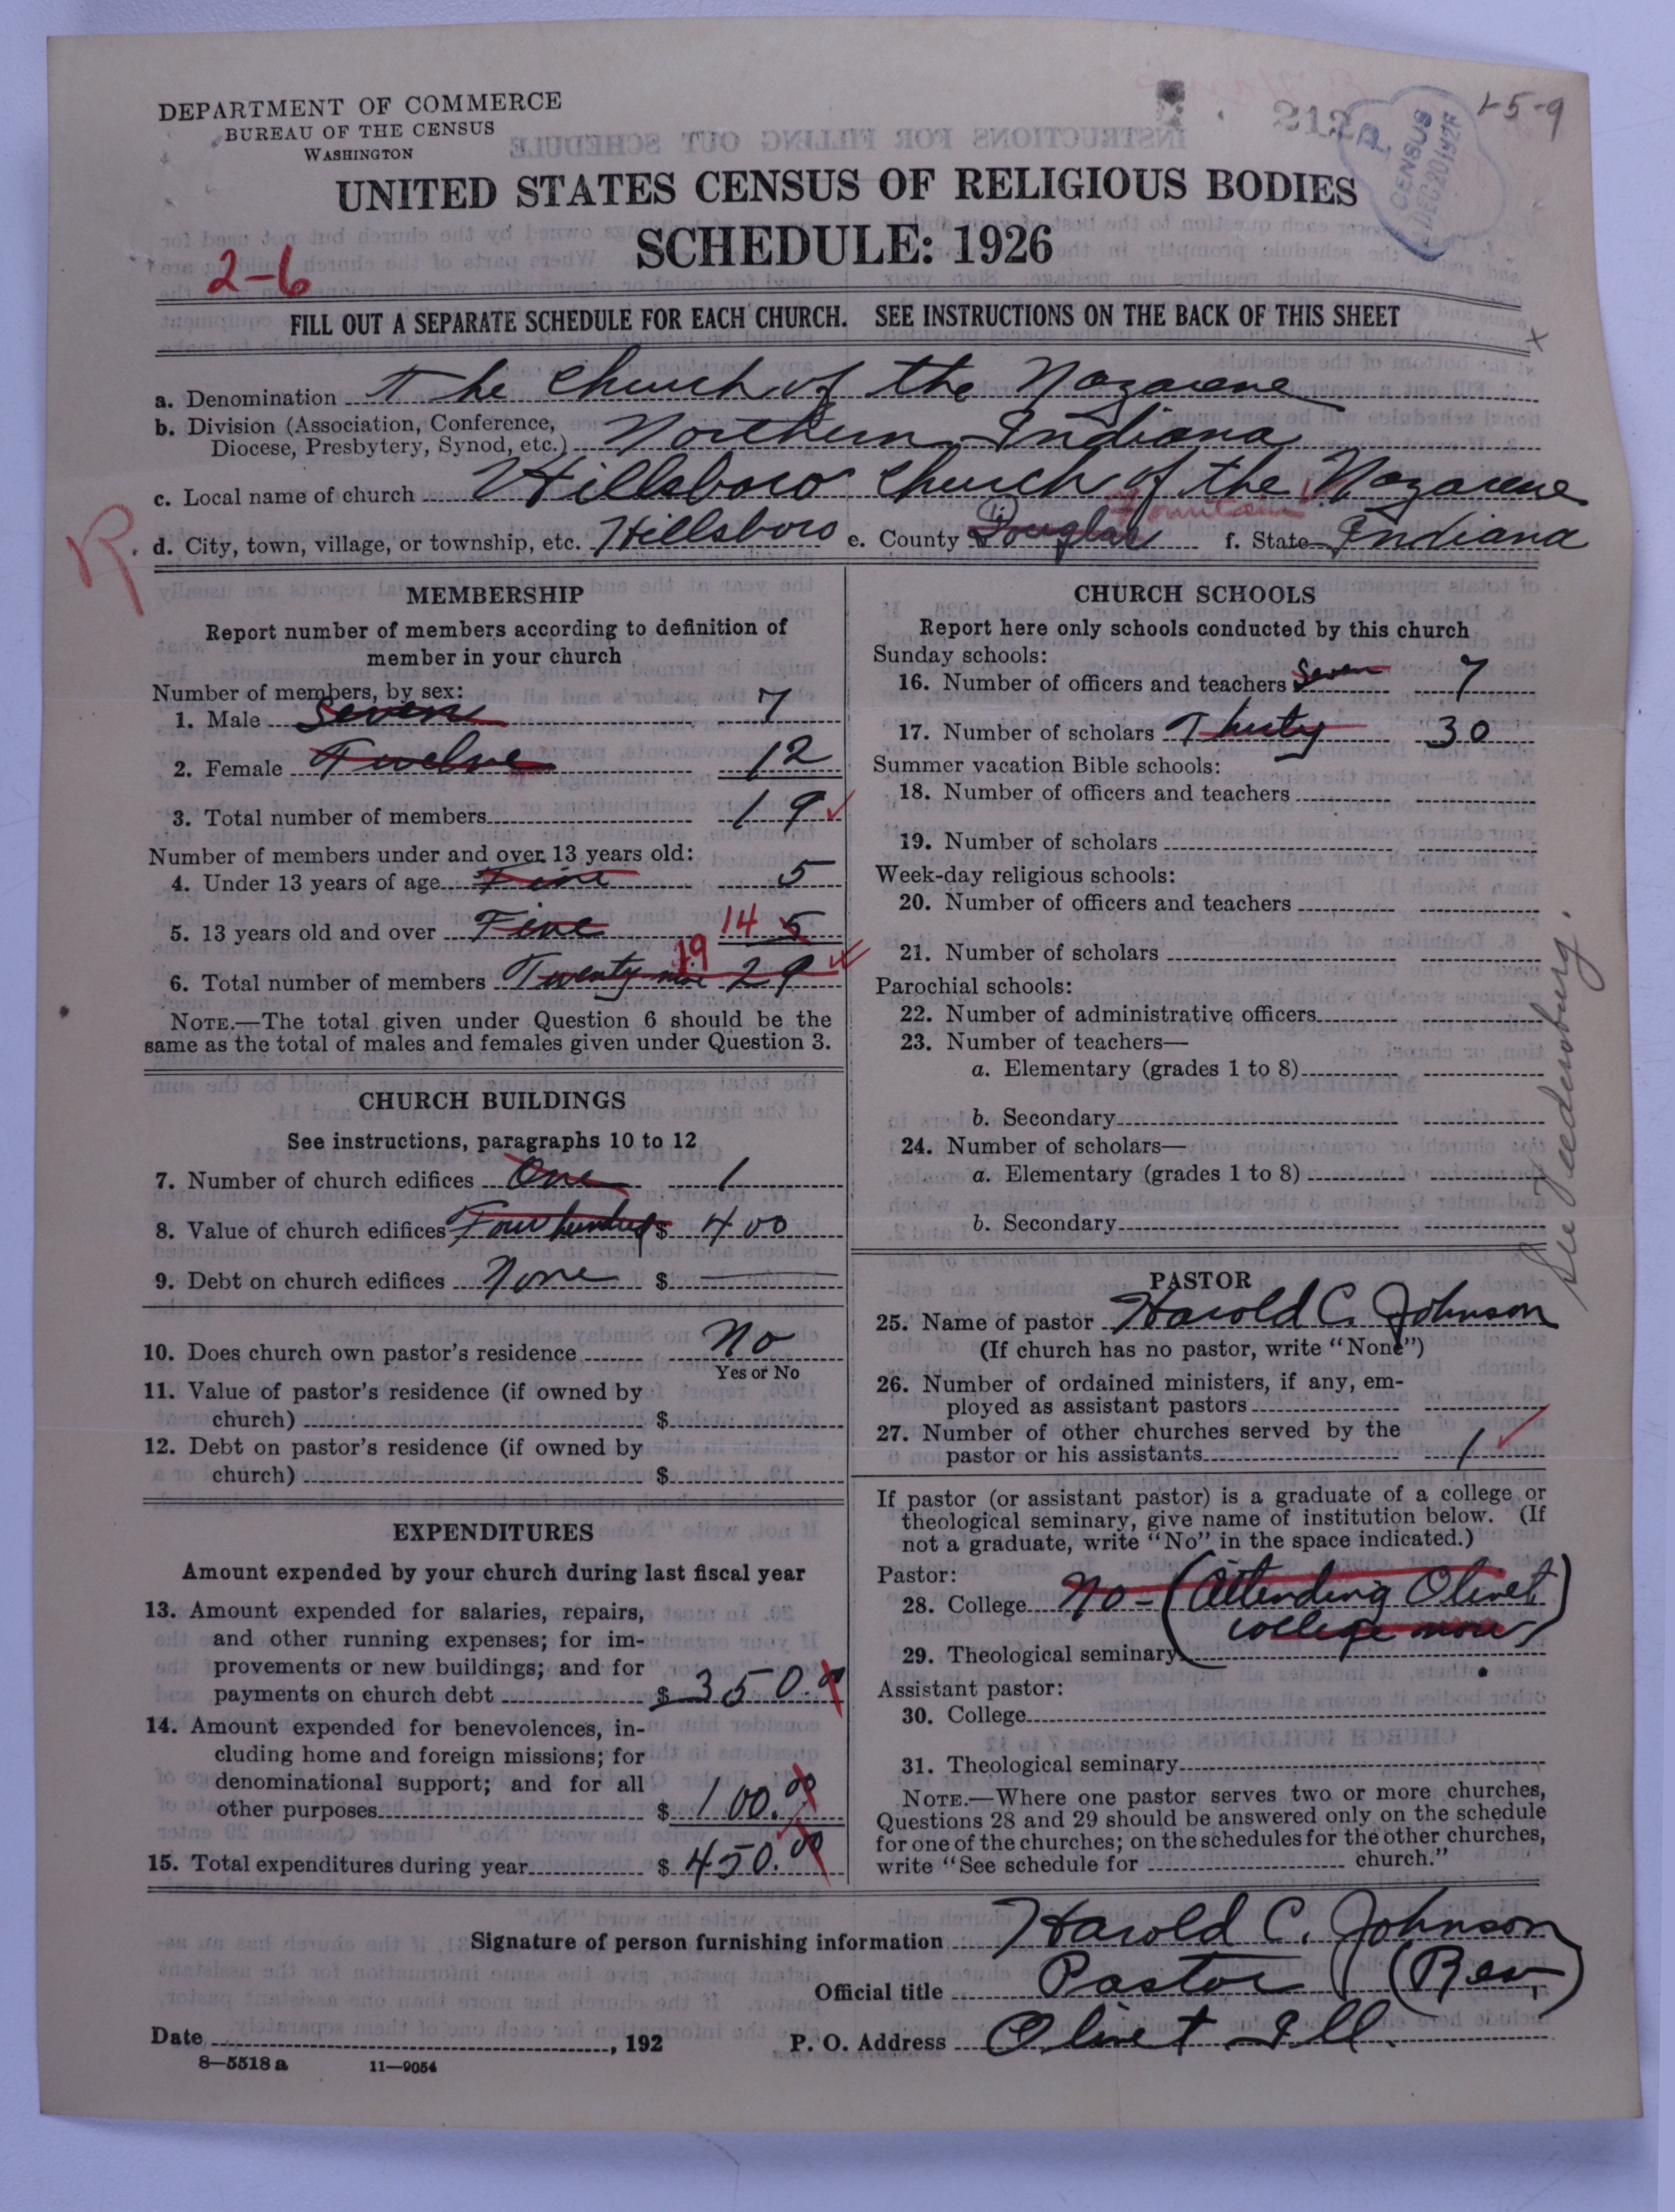 DEPARTMENT OF COMMERCE
BUREAU OF THE CENSUS
WASHINGTON
212
P
CENSUS
DEC 20 192
1-5-9
UNITED STATES CENSUS OF RELIGIOUS BODIES
SCHEDULE: 1926
2-6
FILL OUT A SEPARATE SCHEDULE FOR EACH CHURCH. SEE INSTRUCTIONS ON THE BACK OF THIS SHEET
x
a. Denomination The Church of the Nazarene
b. Division (Association, Conference,
Diocese, Presbytery, Synod, etc.) Northern Indiana
c. Local name of church Hillsboro Church of the Nazarene
Fountain
R. d. City, town, village, or township, etc. Hillsboro e. County Douglas f. State Indiana
MEMBERSHIP
Report number of members according to definition of
member in your church
Number of members, by sex:
1. Male Seven 7
2. Female Twelve 12
3. Total number of members 19
Number of members under and over 13 years old:
4. Under 13 years of age Five 5
5. 13 years old and over Five 14 5
19
6. Total number of members Twenty nine 29
NOTE.—The total given under Question 6 should be the
same as the total of males and females given under Question 3.
CHURCH BUILDINGS
See instructions, paragraphs 10 to 12
7. Number of church edifices One 1
8. Value of church edifices Four hundred $ 400
9. Debt on church edifices None $
10. Does church own pastor's residence No
Yes or No
11. Value of pastor's residence (if owned by
church) $
12. Debt on pastor's residence (if owned by
church) $
EXPENDITURES
Amount expended by your church during last fiscal year
13. Amount expended for salaries, repairs,
and other running expenses; for im-
provements or new buildings; and for
payments on church debt $ 350.00
14. Amount expended for benevolences, in-
cluding home and foreign missions; for
denominational support; and for all
other purposes $ 100.00
15. Total expenditures during year $ 450.00
CHURCH SCHOOLS
Report here only schools conducted by this church
Sunday schools:
16. Number of officers and teachers Seven 7
17. Number of scholars Thirty 30
Summer vacation Bible schools:
18. Number of officers and teachers
19. Number of scholars
Week-day religious schools:
20. Number of officers and teachers
21. Number of scholars
Parochial schools:
22. Number of administrative officers
23. Number of teachers—
a. Elementary (grades 1 to 8)
b. Secondary
24. Number of scholars—
a. Elementary (grades 1 to 8)
b. Secondary
See Veedersburg.
PASTOR
25. Name of pastor Harold C. Johnson
(If church has no pastor, write "None")
26. Number of ordained ministers, if any, em-
ployed as assistant pastors
27. Number of other churches served by the
pastor or his assistants 1
If pastor (or assistant pastor) is a graduate of a college or
theological seminary, give name of institution below. (If
not a graduate, write "No" in the space indicated.)
Pastor:
28. College No - (Attending Olivet
college now)
29. Theological seminary
Assistant pastor:
30. College
31. Theological seminary
NOTE.—Where one pastor serves two or more churches,
Questions 28 and 29 should be answered only on the schedule
for one of the churches; on the schedules for the other churches,
write "See schedule for church."
Signature of person furnishing information Harold C. Johnson
Official title Pastor (Rev)
Date , 192 P. O. Address Olivet Ill.
8—5518 a 11—9054